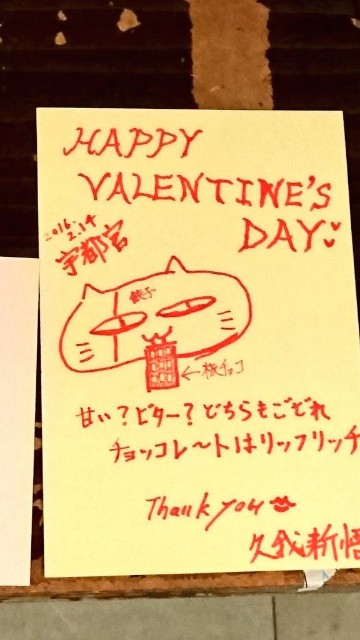 HAPPY
VALENTINE'S
DAY
2016.
2.14
宇都宮
餃子
板チョコ
甘い?ビター?どちらもごぞれ
チョッコレートはリッフリッチ
Thank you
久我新悟